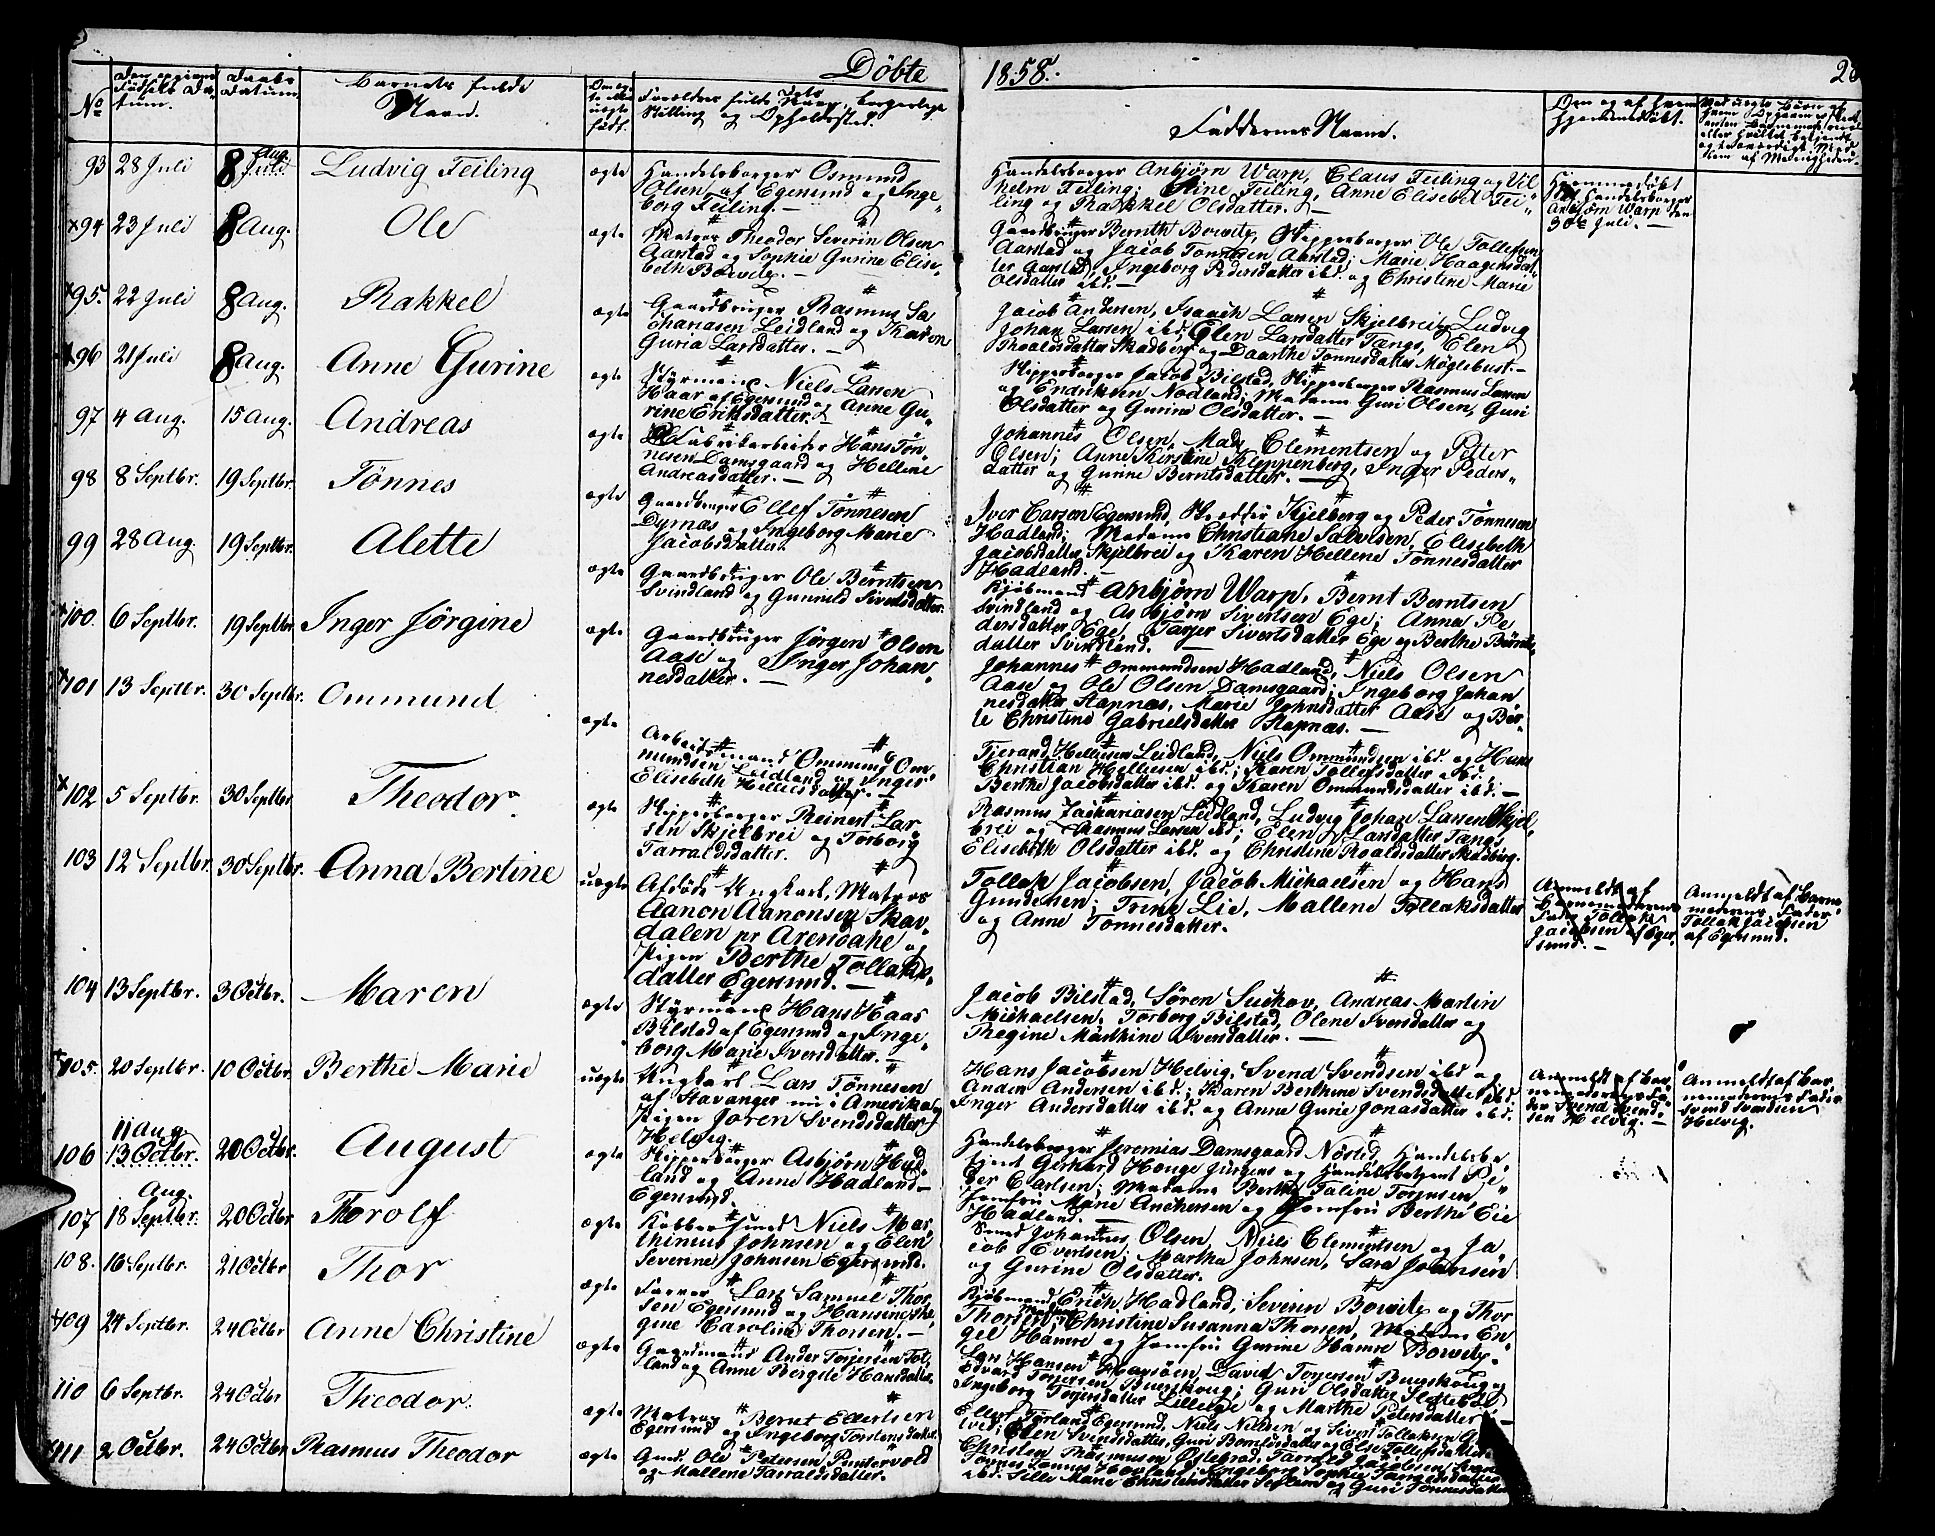 Døbte 1858.
No
Barnets fulde Navn.
Faddernes Navne.
93 28 Juli 8 Aug. Ludvig Feiling ægte Handelsborger Osmund
Olsen af Egersund og Inge-
borg Feiling. —
Handelsborger Asbjørn Warp, Claus Feiling og Vil-
helm Feiling; Stine Feiling, Anne Elisabet Fei-
ling og Rakkel Olsdatter. —
Hjemmedøbt
af Handelsborger
Asbjørn Warp den
30te Juli. —
94 23 Juli 8 Aug. Ole ægte Matros Theodor Severin Olsen
Aarstad og Sophie Gurine Elise-
beth Bowitz. —
Gaardbruger Bernth Bowitz, Skipperborger Ole Tollefsen
Aarstad og Jacob Tønnesen Aarstad; Marie Haagensdat-
ter Aarstad, Ingeborg Pedersdatter ibd. og Christine Marie
Olsdatter ibd. —
95. 22 Juli 8 Aug. Rakkel ægte Gaardbruger Rasmus Sa-
chariasen Leidland og Karen
Guria Larsdatter. —
Jacob Andersen, Isaach Larsen Skjelbrei, Ludvig
Johan Larsen ibd; Elen Larsdatter Tængs, Elen
Roaldsdatter Skadberg og Daarthe Tønnesdatter Møglebust. —
96 21 Juli 8 Aug. Anne Gurine ægte Styrmand Niels Larsen
Haar af Egersund og Anne Gu-
rine Eriksdatter. —
Skipperborger Jacob Bilstad, Skipperborger Rasmus Larsen
og Endriksen Nodland; Madame Guri Olsen, Guri
Olsdatter og Gurine Olsdatter. —
97 4 Aug. 15 Aug. Andreas ægte Fabrikarbeider Hans Tøn-
nesen Damsgaard og Hellene
Andreasdatter. —
Johannes Olsen, Mads Clementsen og Petter
Olsen; Anne Kirstine Kleppenberg, Inger Peders-
datter og Gurine Berntsdatter. —
98 8 Septbr. 19 Septbr. Tønnes ægte Gaardbruger Ellef Tønnesen
Dyrnæs og Ingeborg Marie
Jacobsdatter.
Iver Carson Egersund, Kjelberg og Peder Tønnesen
Hadland; Madame Christiane Salvesen, Elisebeth
Jacobsdatter Skjelbrei og Karen Hellene Tønnesdatter
Hadland. —
99 28 Aug. 19 Septbr. Alette ægte Gaardbruger Ole Berntsen
Svindland og Gunnild Sivertsdatter.
Kjøbmand Asbjørn Warp, Bernt Berntsen
Svindland og Asbjørn Sivertsen Ege; Anna Pe-
dersdatter Ege, Tarjer Sivertsdatter Ege og Berthe Bernts-
datter Svindland. —
100. 6 Septbr. 19 Septbr. Inger Jørgine ægte Gaardbruger Jørgen Olsen
Aase og Inger Johan-
nesdatter. —
Johannes Ommundsen Hadland, Niels Olsen
Aase og Ole Olsen Damsgaard; Ingeborg Johan-
nesdatter Stapnæs, Marie Johnsdatter Aase og Ber-
te Christine Gabrielsdatter Stapnæs. —
101 13 Septbr. 30 Septbr. Ommund ægte Arbeidsmand Ommund Om-
mundsen Leidland og Inger
Elisebeth Helliesdatter. —
Tjerand Helliesen Leidland, Niels Ommundsen ibd. og Hans
Christian Helliesen ibd; Karen Tollefsdatter ibd.,
Berthe Jacobsdatter ibd. og Karen Ommundsdatter ibd: —
102 5 Septbr. 30 Septbr. Theodor. ægte Skipperborger Reinert Lar-
sen Skjelbrei og Torborg
Tarraldsdatter.
Rasmus Zachariasen Leidland, Ludvig Johan Larsen Skjel-
brei og Rasmus Larsen ibd; Elen Larsdatter Tængs,
Elisebeth Olsdatter ibd. og Christine Roaldsdatter Skadberg.
103 12 Septbr. 30 Septbr. Anna Bertine uægte Afdøde Ungkarl, Matros
Aanon Aanonsen Skav-
dalen pr Arendahl og
Pigen Berthe Tollaks-
datter Egersund. —
Tollak Jacobsen, Jacob Michaelsen og Hans
Gundersen; Trine Lie, Mallene Tollaksdatter
og Anne Tønnesdatter.
Anmeldt af
Barnemoderens
Fader Tollak
Jacobsen af Eger-
sund. —
Anmeldt af Barne-
moderens Fader
Tollak Jacobsen
af Egersund.
104 13 Septbr. 3 Octbr. Maren ægte Styrmand Hans Haas
Bilstad af Egersund og Inge-
borg Marie Iversdatter. —
Jacob Bilstad, Søren Suchov, Andreas Martin
Michaelsen; Torborg Bilstad, Olene Iversdatter og
Regine Marthine Iversdatter. —
105. 20 Septbr. 10 Octbr. Berthe Marie uægte Ungkarl Lars Tønnesen
af Stavanger nu i Amerika og
Pigen Joren Svendsdatter
Helvig.
Hans Jacobsen Helvig, Svend Svendsen ibd og
Anders Andersen ibd.; Karen Berthine Svendsdatter ibd.
Inger Andersdatter ibd. og Anne Gurie Jonasdatter ibd.
Anmeldt af Bar-
nemoderens Fa-
der Svend Svend-
sen Helvig. —
Anmeldt af Bar-
nemoderens Fader
Svend Svendsen
Helvig.
106 11 Aug. 13 Octbr. 20 Octbr. August ægte Skipperborger Asbjørn Had-
land og Anne Hadland —
Egersund.
Handelsborger Jeremias Damsgaard Nøsted, Handelsbe-
tjent Gerhard Houge Jürgens og Handelsbetjent Pe-
der Carlsen; Madame Berthe Taline Torjusen
Jomfru Marie Anchersen og Jomfru Berthe Eie
Hadland. —
107 Aug. 18 Septbr. 20 Octbr Thorolf ægte Kobbersmed Niels Mar-
thinius Johnsen og Elen
Severine Johnsen Egersund.
Smed Johannes Olsen, Niels Clementsen og Ja-
cob Evertsen; Martha Johnsen, Sara Johnsen
og Gurine Olsdatter.
108. 16 Septbr. 21 Octbr Thor ægte Farver Lars Samuel Thor-
sen Egersund og Hansine Re-
gine Caroline Thorsen. —
Kjøbmand Erich Hadland, Severin Bowitz og Thor
Thorsen; Madame Christine Susanna Thorsen, Madame En-
gel Hamre og Jomfru Gurine Hamre Bowitz.
109 24 Septbr. 24 Octbr Anne Christine ægte Gaardmand Ander Torjersen Tot-
land og Anne Bergite Hansdatter.
Lars Hansen Havsøen, David Torjersen Buerskoug og
Edvard Torjersen Buerskoug; Guri Olsdatter Slettebø,
Ingeborg Torjersdatter Lilleege og Marthe Petersdatter —
110 6 Septbr. 24 Octbr Theodor. ægte Matros Bernt Ellertsen
Egersund og Ingeborg Torstensdatter
Ellert Tørland Egersund, Niels Nilsen og Sivert Tollaksen
Elen Svendsdatter, Guri Bornfusdatter og Else Tollefsdatter
111 2 Octbr. 24 Octbr Rasmus Theodor ægte Gmd. Ole Petersen Puntervold
og Mallene Tarraldsdatter.
Christen Rasmussen Østebrød, Tarrald Jacobsen
Tønnes Tønnes Havland; Ingeborg Sophie Tængesdatter
ibd. Sille Marie Christensdatter Seglem og Guri Tønnesdatter